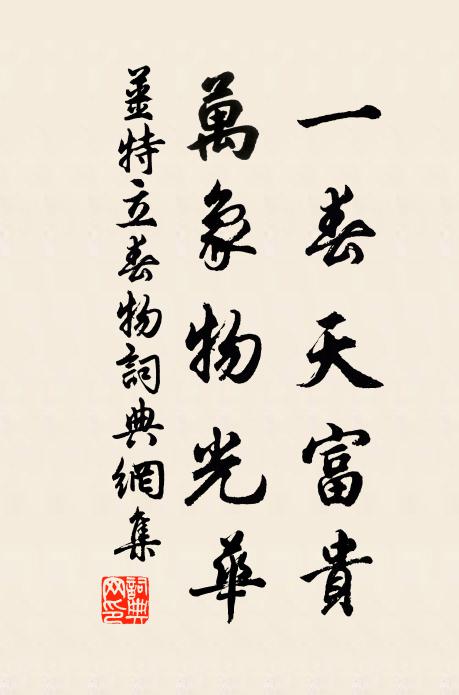 一春天富貴
萬象物光華
姜特立春物詞典網集
詞典網印